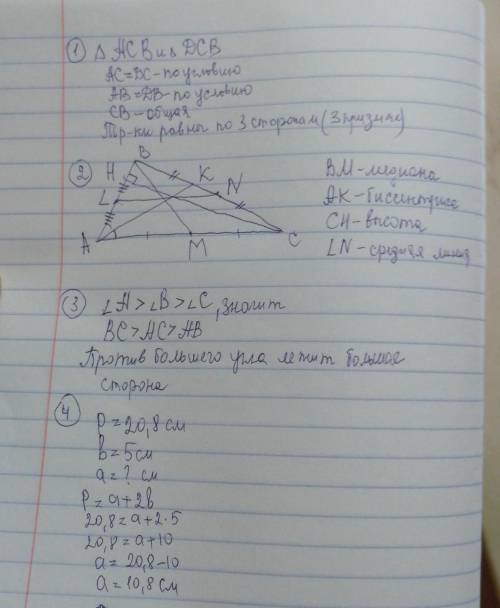 ① △ ACB и △ DCB
AC=DC - по условию
AB=DB - по условию
CB - общая
Тр-ки равны по 3 сторонам (3 признак)
②
B
H
K
L
N
A
M
C
BM - медиана
AK - биссектриса
CH - высота
LN - средняя линия
③ ∠A > ∠B > ∠C, значит
BC > AC > AB
Против большего угла лежит большая
сторона
④
P = 20,8 см
b = 5 см
a = ? см
P = a + 2b
20,8 = a + 2·5
20,8 = a + 10
a = 20,8 - 10
a = 10,8 см